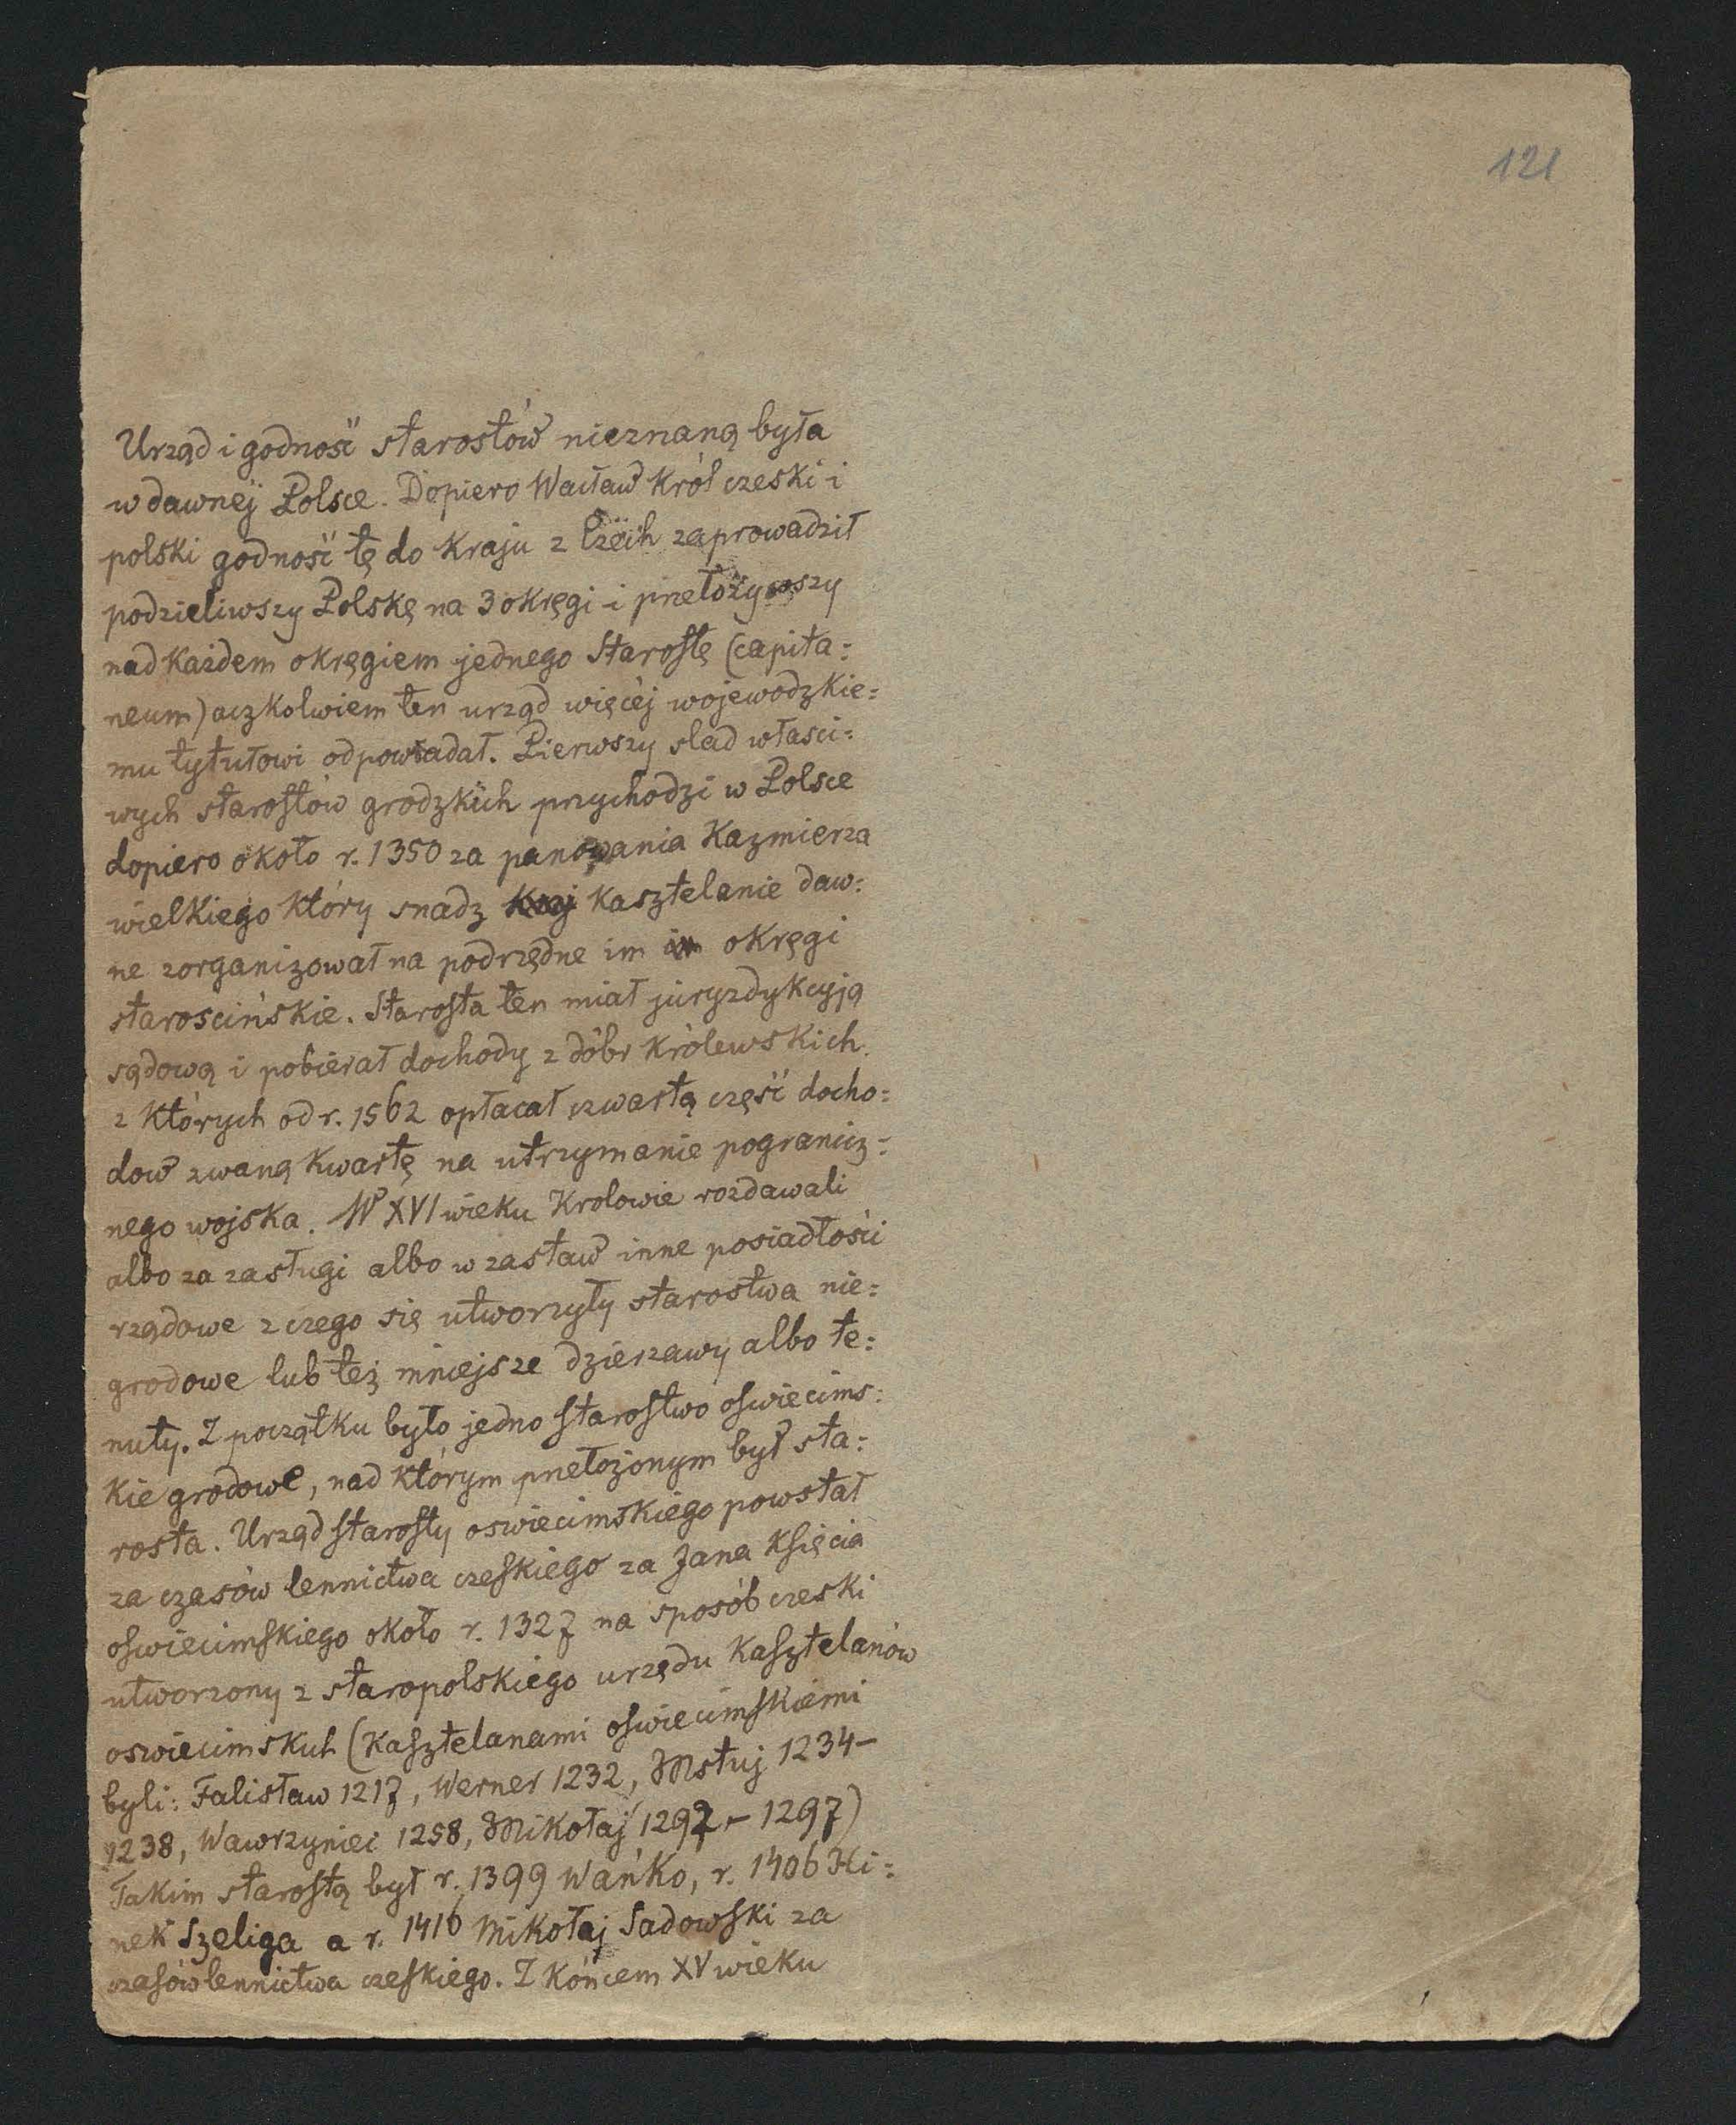 121
Urząd i godność starostów nieznaną była
w dawnej Polsce. Dopiero Wacław Król czeski i
polski godność tę do Kraju z Czech zaprowadził
podzieliwszy Polskę na 3 okręgi i przełożywszy
nad Każdem okręgiem jednego Starostę (capita=
neum) aczkolwiem ten urząd więcéj wojewodzkie=
mu tytułowi odpowiadał. Pierwszy slad własci=
wych starostów grodzkich przychodzi w Polsce
dopiero około r. 1350 za panowania Kazmierza
wielkiego Który snadz Kasztelanie daw=
ne zorganizował na podrzędne im okręgi
starościńskie. Starosta ten miał juryzdykcyją
sądową i pobierał dochody z dóbr Królewskich
z Których od r. 1562 opłacał czwartą część docho=
dow zwaną Kwartę na utrzymanie pogranicz=
nego wojska. W XVI wieku Krolowie rozdawali
albo za zasługi albo w zastaw inne posiadłości
rządowe z czego się utworzyły starostwa nie=
grodowe lub też mniejsze dzierzawy albo te=
nuty. Z początku było jedno starostwo oswiecims=
Kie grodowe, nad Którym przełożonym był sta=
rosta. Urząd starosty oswiecimskiego powstał
za czasów lennictwa czeskiego za Jana Księcia
oswiecimskiego około r. 1327 na sposób czeski
utworzony z staropolskiego urzędu Kasztelanów
oswiecimskich (Kasztelanami oswiecimskiemi
byli: Falisław 1217, Werner 1232, Mstuj 1234–
1238, Wawrzyniec 1258, Mikołaj 1292 – 1297)
Takim starostą był r. 1399 Wańko, r. 1406 Hi=
nek Szeliga a r. 1416 Mikołaj Sadowski za
czasów lennictwa czeskiego. Z Końcem XV wieku